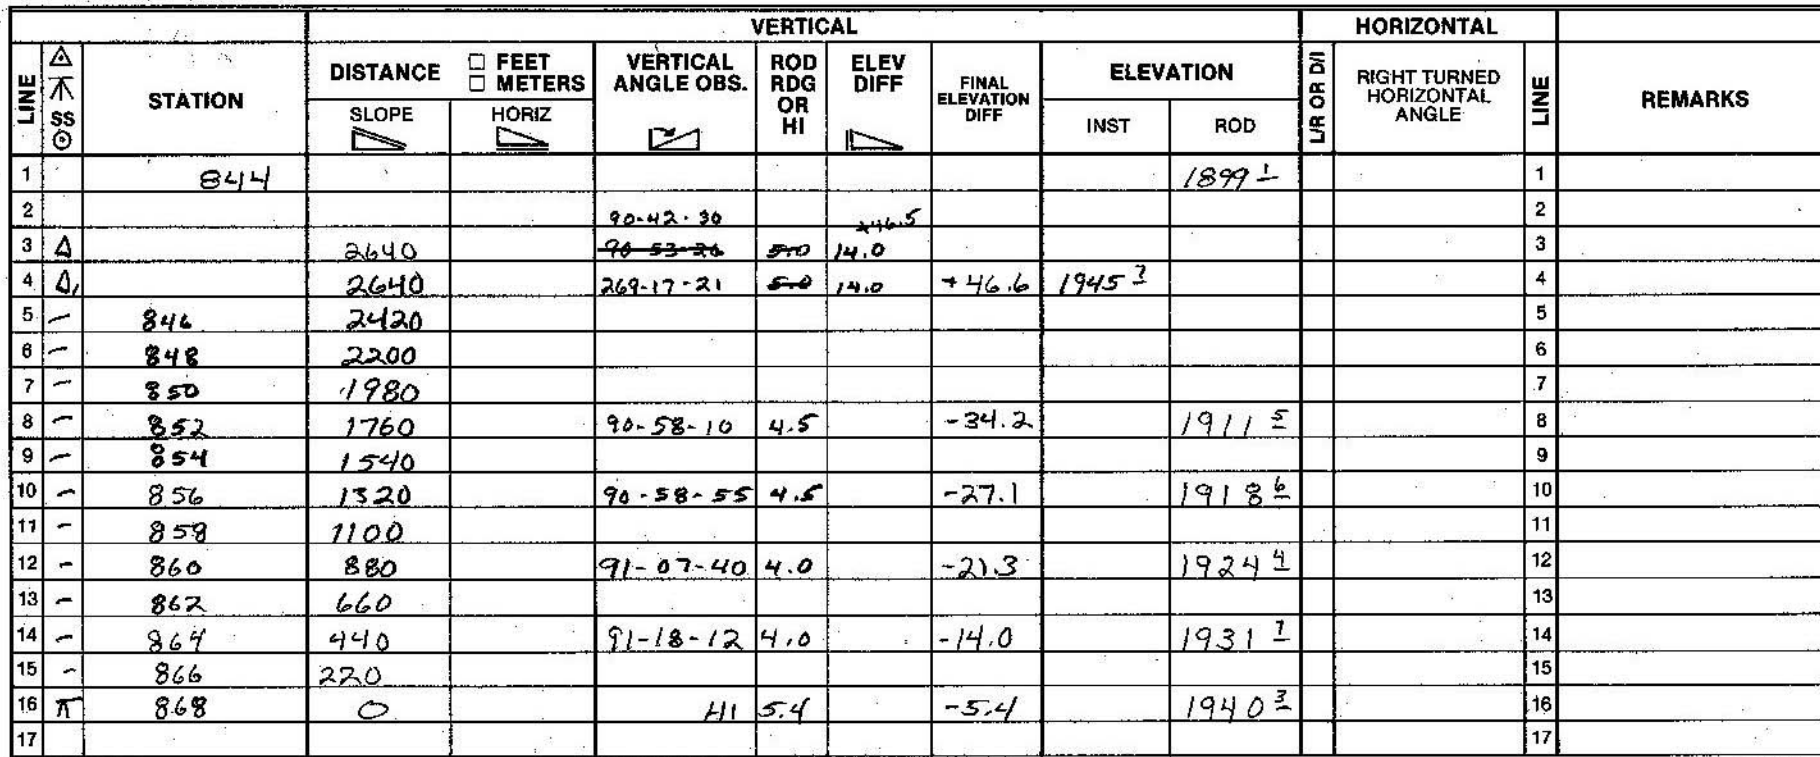 VERTICAL HORIZONTAL
LINE SS STATION DISTANCE □ FEET □ METERS VERTICAL ANGLE OBS. ROD RDG OR HI ELEV DIFF FINAL ELEVATION DIFF ELEVATION L/R OR D/I RIGHT TURNED HORIZONTAL ANGLE LINE REMARKS
SLOPE HORIZ INST ROD
1 844 1899 1 1
2 90-42-30 +46.5 2
3 Δ 2640 90-53-26 5.0 14.0 3
4 Δ, 2640 269-17-21 5.0 14.0 +46.6 1945 7 4
5 - 846 2420 5
6 - 848 2200 6
7 - 850 1980 7
8 - 852 1760 90-58-10 4.5 -34.2 1911 5 8
9 - 854 1540 9
10 - 856 1320 90-58-55 4.5 -27.1 1918 6 10
11 - 858 1100 11
12 - 860 880 91-07-40 4.0 -21.3 1924 4 12
13 - 862 660 13
14 - 864 440 91-18-12 4.0 -14.0 1931 7 14
15 - 866 220 15
16 π 868 0 HI 5.4 -5.4 1940 3 16
17 17